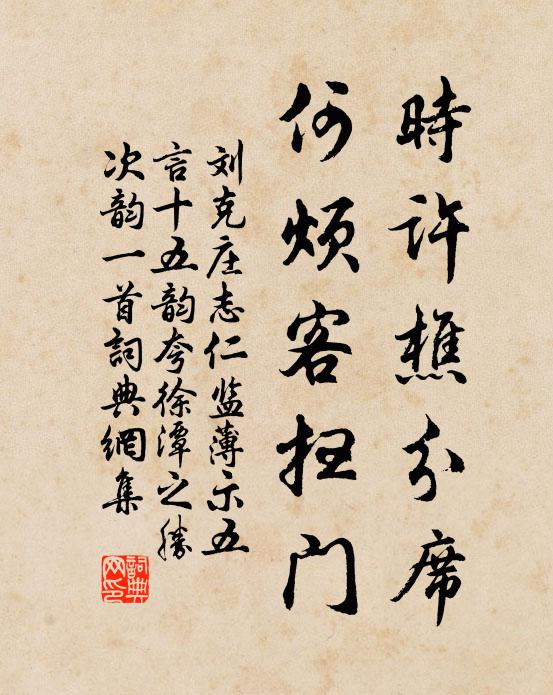 時許樵分席
何煩客扫门
刘克庄志仁监薄示五
言十五韵夸徐潭之勝
次韵一首詞典網集
詞典
网印